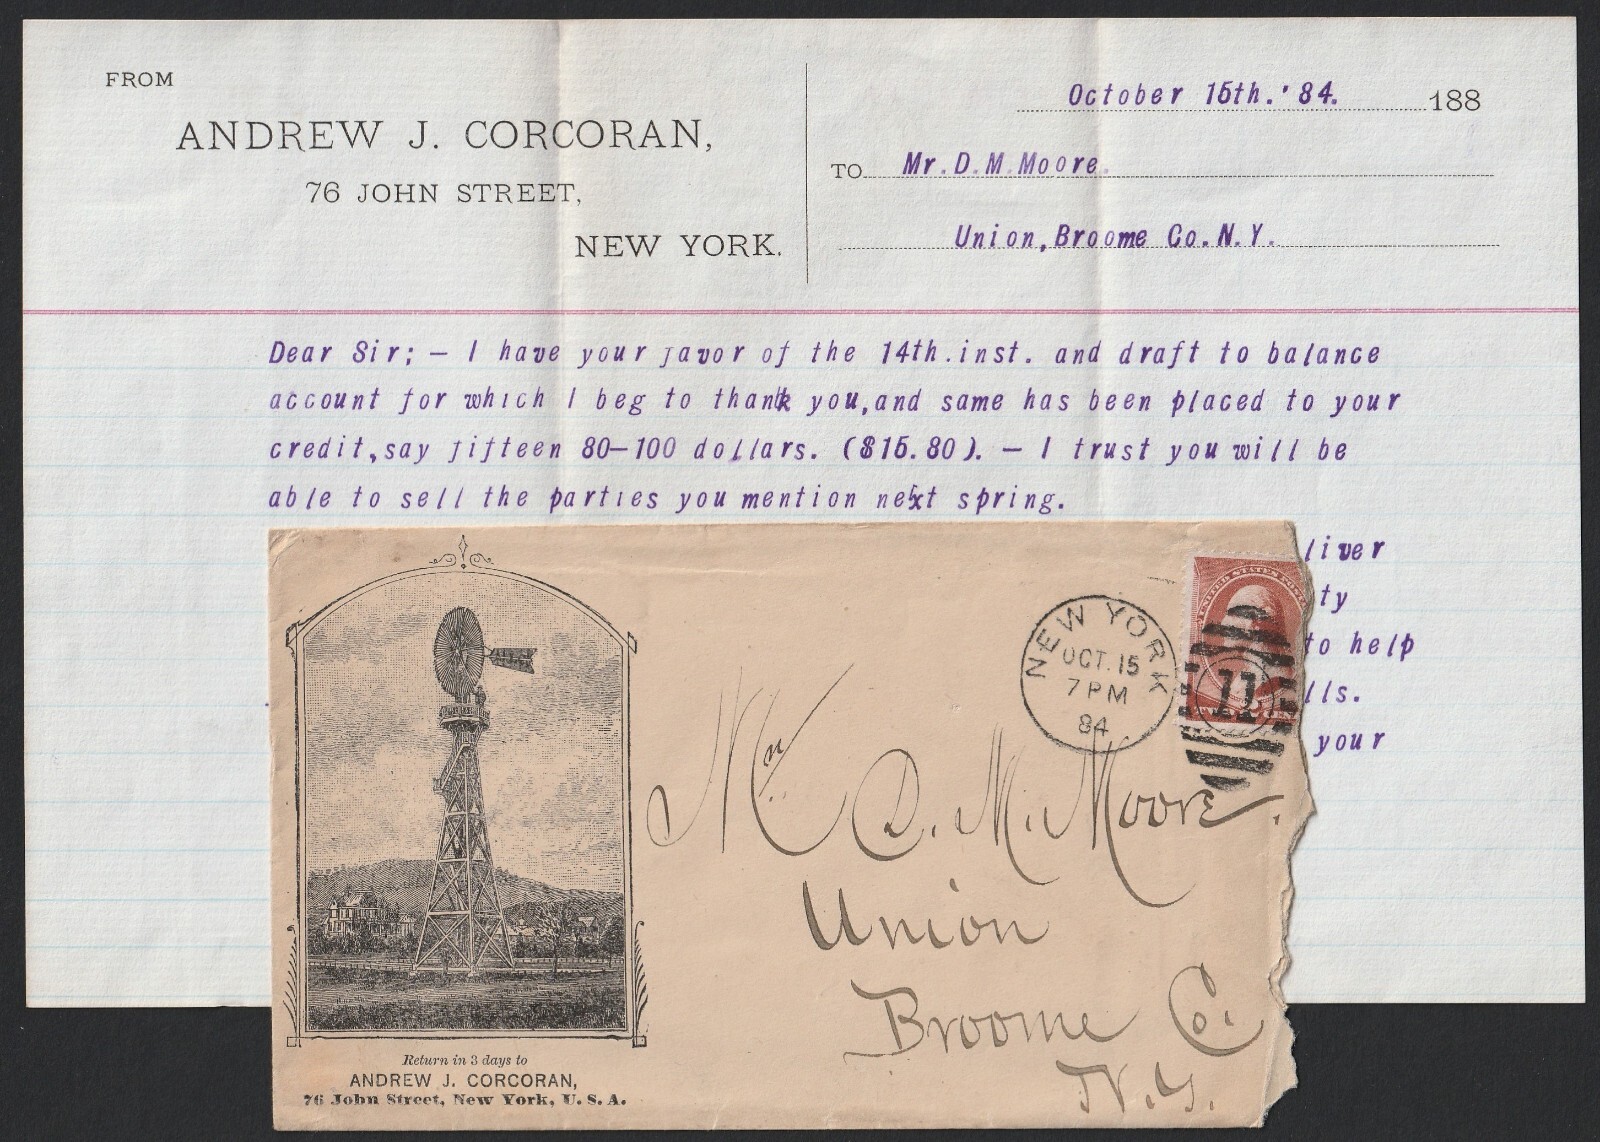 FROM
ANDREW J. CORCORAN,
76 JOHN STREET,
NEW YORK.
October 15th.'84. 188
TO Mr.D.M.Moore.
Union,Broome Co.N.Y.
Dear Sir; — I have your favor of the 14th.inst. and draft to balance
account for which I beg to thank you,and same has been placed to your
credit,say fifteen 80—100 dollars. ($15.80). — I trust you will be
able to sell the parties you mention next spring.
liver
ty
to help
lls.
your
NEW YORK
OCT. 15
7 PM
84
UNITED STATES
11
Mr. D. M. Moore.
Union
Broome Co.
N.Y.
Return in 3 days to
ANDREW J. CORCORAN,
76 John Street, New York, U. S. A.